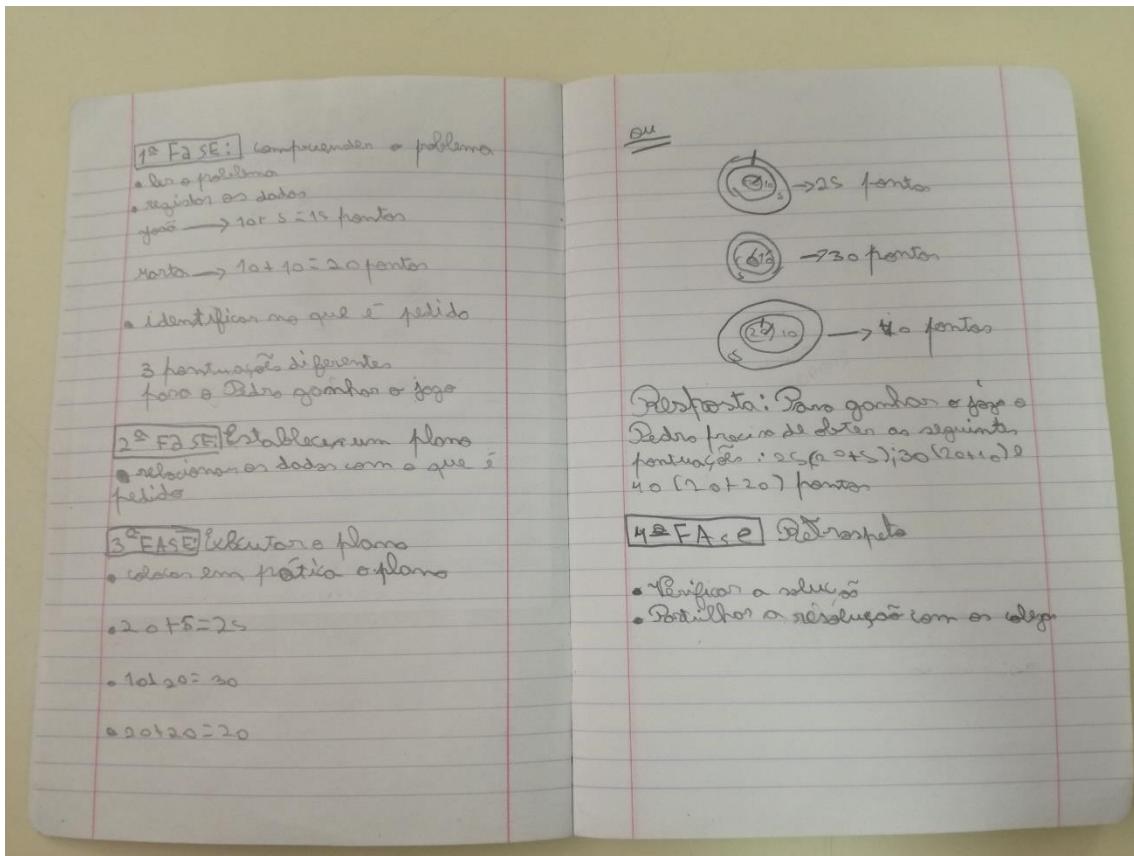 1ª FASE: compreender o problema
• ler o problema
• registar os dados
João → 10+5=15 pontos
Marta → 10+10=20 pontos
• identificar no que é pedido
3 pontuações diferentes
para o Pedro ganhar o jogo
2ª FASE: Establecer um plano
• relacionar os dados com o que é
pedido
3ª FASE: Executar o plano
• colocar em prática o plano
• 20+5=25
• 10+20=30
• 20+20=20
ou
10 5 → 25 pontos
5 → 30 pontos
20 10 5 → 40 pontos
Resposta: Para ganhar o jogo o
Pedro precisa de obter as seguintes
pontuações: 25(20+5); 30(20+10) e
40 (20+20) pontos
4ª FAse Retrospeto
• Verificar a solução
• Partilhar a resolução com os colegas